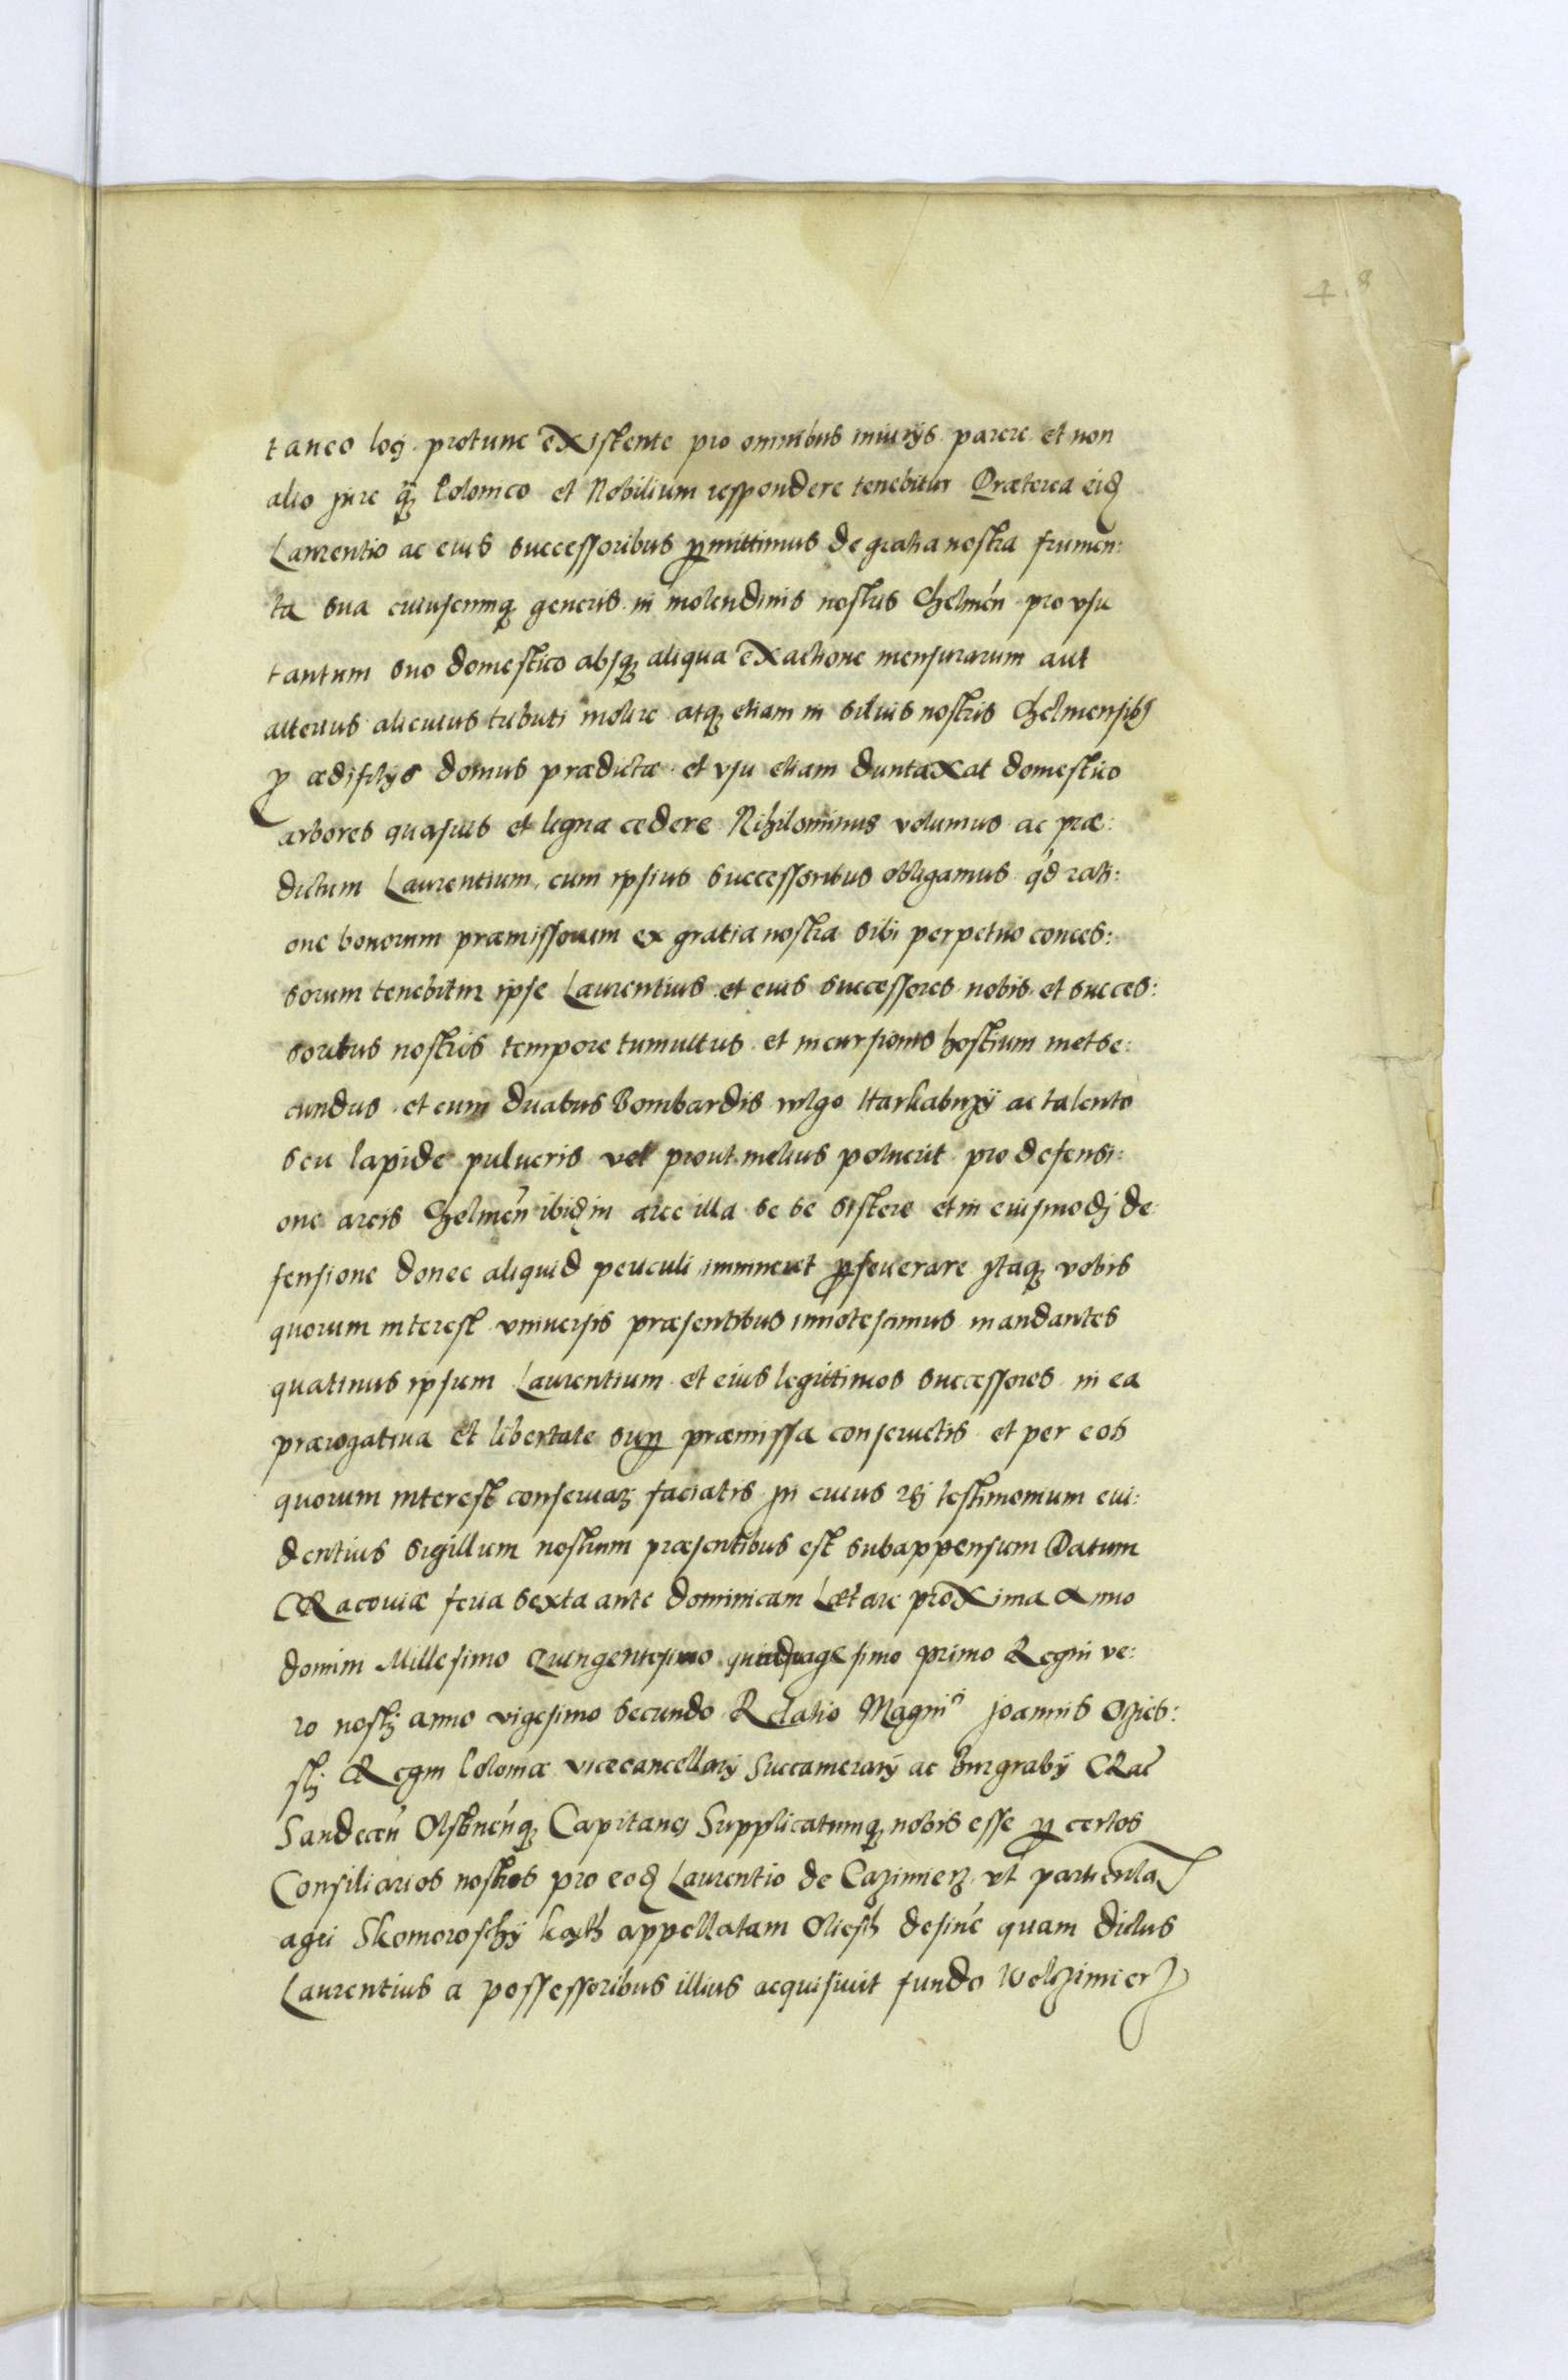 4.8
taneo loci protunc existente pro omnibus iniurijs parere et non
alio jure q̃ Polonico et Nobilium respondere tenebitur Præterea eid
Laurentio ac eius successoribus ꝑmittimus de gratia nostra frumen:
ta sua cuiuscunq generis in molendinis nostris Chelmeñ pro vsu
tantum suo domestico absq aliqua exactione mensurarum aut
alterius alicuius tributi molire atq etiam in siluis nostris Chelmensibꝫ
ꝓ ædifitijs domus prædictæ et vsu etiam duntaxat domestico
arbores quasuis et ligna cedere Nihilominus volumus ac præ:
dictum Laurentium, cum ipsius successoribus obligamus qd rati:
one bonorum præmissorum ex gratia nostra sibi perpetuo conces:
sorum tenebitur ipse Laurentius et eius successores nobis et succes:
soribus nostris tempore tumultus et incursionis hostium metse:
cundus et cum duabus Bombardis vulgo Harkabuzÿ ac talento
seu lapide pulueris vel prout melius poluerit pro defensi:
one arcis Chelmeñ ibidm in arce illa se se sistere et in eiusmodj de
fensione donec aliquid periculi immineret ꝑseuerare jtaq vobis
quorum interest vniuersis præsentibus innotescimus mandantes
quatinus ipsum Laurentium et eius legittimos successores in ea
prærogatiua et libertate suꝑ præmissa conseruetis et per eos
quorum interest conseruaꝫ faciatis jn cuius rei testimonium eui:
dentius sigillum nostrum præsentibus est subappensum Datum
CRacouiæ feria sexta ante dominicam Lætare proxima Anno
domini Millesimo Quingentesimo simo primo Regni ve:
ro nostrj anno vigesimo secundo Relatio Magnici joannis Ocies:
skj Regni Poloniæ vicecancellarij Succamerarij ac Burgrabij CRac
Sandeceñ Olstineñq Capitanej Supplicatumq nobis esse ꝑ certos
Consiliarios nostros pro eod Laurentio de Cazimierz vt particula
agri Skomoroschÿ appellatam desine quam dictus
Laurentius a possessoribus illius acquisiuit fundo Wolzimierz